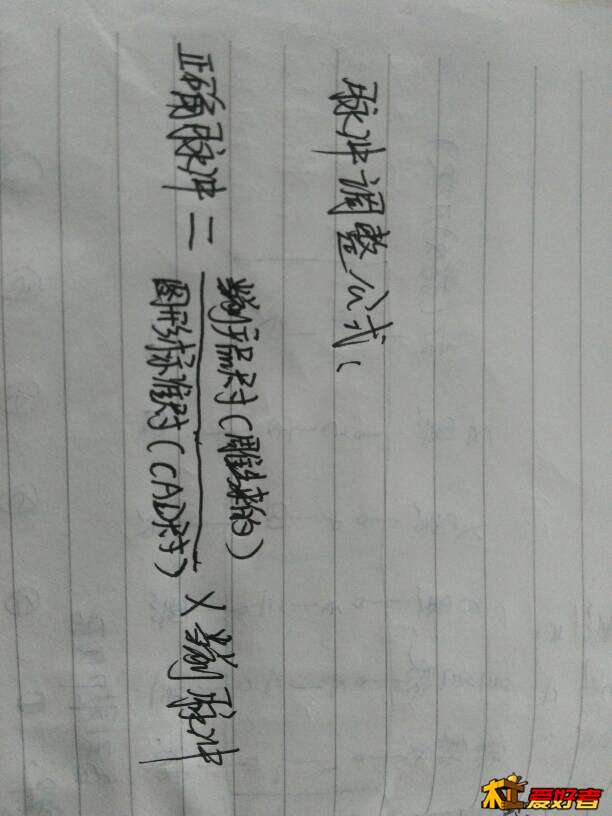 脉冲调整公式:
正确脉冲 = 
当前产品尺寸(雕出来的)
图形标准尺寸(CAD尺寸)
× 当前脉冲
木工爱好者